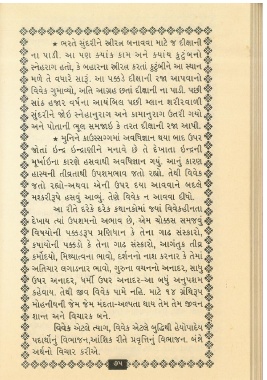 ★ ભરતે સુંદરીને સ્ત્રીરત્ન બનાવવા માટે જ દીક્ષાની
ના પાડી. આ પણ ક્યાંક કામ અને ક્યાંય કુટુંબનો
સ્નેહરાગ હતો, કે બહારના સ્ત્રીરત્ન કરતાં કુટુંબીને આ સ્થાન
મળે તે વધારે સારૂં. આ પક્કડે દીક્ષાની રજા આપવાનો
વિવેક ગુમાવ્યો, અતિ આગ્રહ છતાં દીક્ષાની ના પાડી. પછી
સાંઠ હજાર વર્ષના આયંબિલ પછી ગ્લાન શરીરવાળી
સુંદરીને જોઇ સ્નેહાનુરાગ અને કામાનુરાગ ઉતરી ગયો
અને પોતાની ભુલ સમજાઇ કે તરત દીક્ષાની રજા આપી.
★ મુનિને કાઉસગ્ગમાં અવધિજ્ઞાન થયા બાદ ઉપર
જોતાં ઇન્દ્ર ઇન્દ્રાણીને મનાવે છે તે દેખાતા ઇન્દ્રની
મૂર્ખાઇના કારણે હસવાથી અવધિજ્ઞાન ગયું. આનું કારણ
હાસ્યની તીવ્રતાથી ઉપશમભાવ જતો રહ્યો. તેથી વિવેક
જતો રહ્યો-અથવા એની ઉપર દયા આવવાને બદલે
મશ્કરીરૂપે હસવું આવ્યું. તેણે વિવેક ન આવવા દીધો.
આ રીતે દરેકે દરેક કથાનકોમાં જ્યાં વિવેકહીનતા
દેખાય ત્યાં ઉપશમનો અભાવ છે, એમ ચોક્કસ સમજવું
વિષયોની પક્કડરૂપ પ્રણિધાન કે તેના ગાઢ સંસ્કારો,
કષાયોની પક્કડો કે તેના ગાઢ સંસ્કારો, આગંતુક તીવ્ર
કર્મોદયો, મિથ્યાત્વના ભાવો, દર્શનનો નાશ કરનાર કે તેમાં
અતિચાર લગાડનાર ભાવો, ગુરુના વચનનો અનાદર, સાધુ
ઉપર અનાદર, ધર્મી ઉપર અનાદર-આ બધું અનુપશમ
કહેવાય. તેથી જીવ વિવેક પામે નહિ. માટે ૨૪ ગ્રંથિરૂપ
મોહનીયની જેમ જેમ મંદતા-અલ્પતા થાય તેમ તેમ જીવન
શાન્ત અને વિચારક બને.
વિવેક એટલે ત્યાગ, વિવેક એટલે બુદ્ધિથી હેયોપાદેય
પદાર્થોનું વિભાજન,આંશિક રીતે પ્રવૃત્તિનું વિભાજન. બંને
અર્થનો વિચાર કરીએ.
૭૫